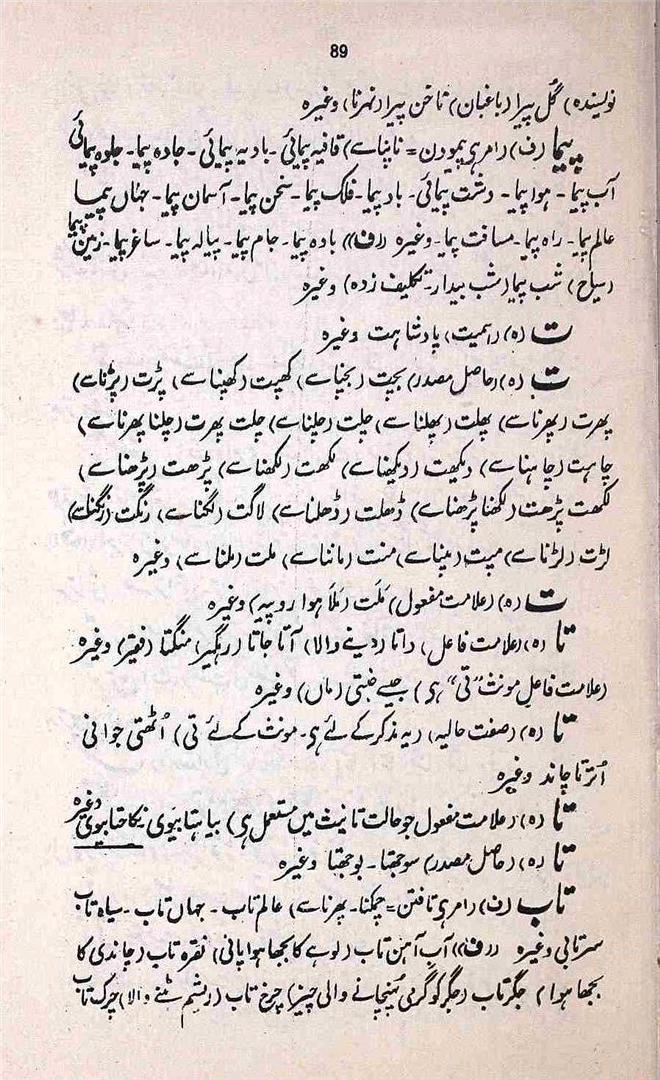 89
نویسندہ) گُل پیرا (باغبان) ناخن پیرا (نہرنا) وغیرہ
پیما (ف) (امر؟ پیمودن = ناپنا سے) قافیہ پیمائی - بادیہ پیمائی - جادہ پیما - جلوہ پیمائی
آب پیما - ہوا پیما - دشت پیمائی - باد پیما - فلک پیما - سخن پیما - آسمان پیما - جہاں پیما
عالم پیما - راہ پیما - مسافت پیما - وغیرہ (ف۲) بادہ پیما - جام پیما - پیالہ پیما - ساغر پیما - زمین پیما
(سیاح) شب پیما (شب بیدار - تکلیف زدہ) وغیرہ
ت (ہ) (اسمیت) بادشاہت وغیرہ
ت (ہ) (حاصل مصدر) بچت (بچنا سے) کھپت (کھپنا سے) پڑت (پڑنا سے)
پھرت (پھرنا سے) پھلت (پھلنا سے) چلت (چلنا سے) چلت پھرت (چلنا پھرنا سے)
چاہت (چاہنا سے) دیکھت (دیکھنا سے) لکھت (لکھنا سے) پڑھت (پڑھنا سے)
لکھت پڑھت (لکھنا پڑھنا سے) ڈھلت (ڈھلنا سے) لاگت (لگنا سے) رنگت (رنگنا سے)
لڑت (لڑنا سے) مپت (مپنا سے) منت (ماننا سے) ملت (ملنا سے) وغیرہ
ت (ہ) (علامت مفعول) مَلَت (مَلا ہوا روپیہ) وغیرہ
تا (ہ) (علامت فاعل) داتا (دینے والا) آتا جاتا (رہگیر) منگتا (فقیر) وغیرہ
(علامت فاعلی مونث "تی" ہی) جیسے جنتی (ماں) وغیرہ
تا (ہ) (صفت حالیہ) (یہ مذکر کے لئے ہی - مونث کے لئے تی) اُٹھتی جوانی
اُترتا چاند وغیرہ
تا (ہ) (علامت مفعول جو حالت تانیث میں مستعمل ہی) بیاہتا بیوی نکاحتا بیوی وغیرہ
تا (ہ) (حاصل مصدر) سوجھتا - بوجھتا وغیرہ
تاب (ف) (امر؟ تافتن = چمکنا - پھرنا سے) عالم تاب - جہاں تاب - سیاہ تاب
سرتابی وغیرہ (ف۲) آبِ آہن تاب (لوہے کا بجھا ہوا پانی) نقرہ تاب (چاندی کا
بجھا ہوا) جگر تاب (جگر کو گرمی پہنچانے والی چیز) چرخ تاب (ریشم بٹنے والا) چرک تاب